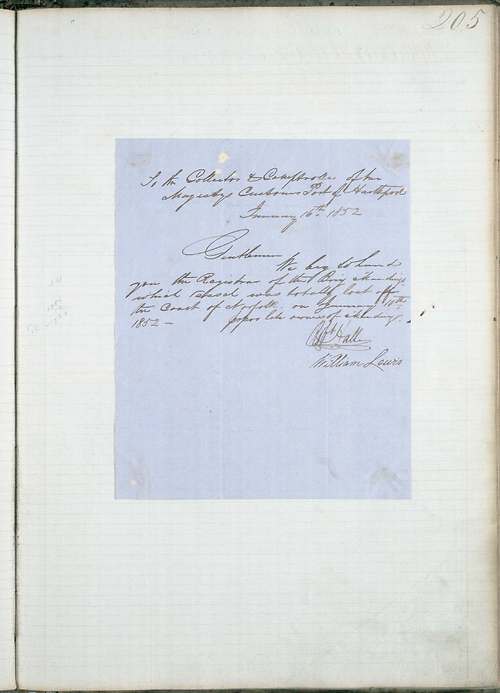 205
To the Collector & Comptroller of her
Majestys Customs Port of Hartlepool
January 16th 1852
Gentlemen
We beg to hand
you the Register of the Brig
which Vessel was totally lost off
the Coast of Norfolk on January 10th
1852 — owners of
Hall
William Lewis